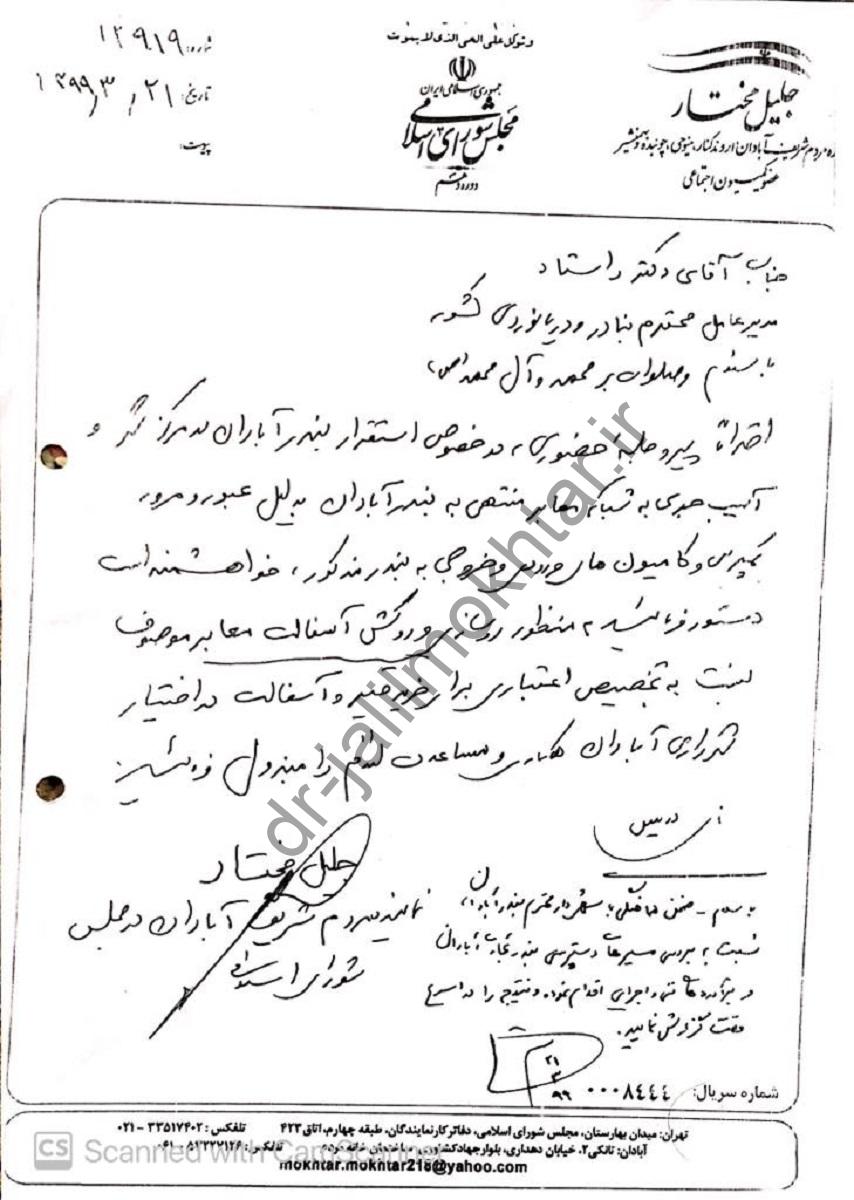 وتوکل علی الحی الذی لا یموت
جمهوری اسلامی ایران
مجلس شورای اسلامی
دوره دهم
شماره: ۱۲۹۱۹
تاریخ: ۱۳۹۹/۳/۲۱
پیوست:
جلیل مختار
مردم شریف آبادان، اروندکنار، مینوحی، چوئبده و بهمنشیر
عضو کمیسیون اجتماعی
جناب آقای دکتر راستاد
مدیرعامل محترم بنادر و دریانوردی کشور
با سلام و صلوات بر محمد و آل محمد (ص)،
احتراماً پیرو جلسه حضوری، در خصوص استقرار بندر آبادان در مرکز شهر و
آسیب جدی به شبکه معابر منتهی به بندر آبادان بدلیل عبور و مرور
کمپرسی و کامیون های ورودی و خروجی به بندر مذکور، خواهشمند است
دستور فرمائید به منظور بهسازی و روکش آسفالت معابر موصوف
نسبت به تخصیص اعتباری برای خرید قیر و آسفالت در اختیار
شهرداری آبادان همکاری و مساعدت لازم را مبذول فرمائید
جلیل مختار
نماینده مردم شریف آبادان در مجلس
شورای اسلامی
با سلام - ضمن هماهنگی با شهردار محترم بندر آبادان
نسبت به بررسی مسیرهای دسترسی بندر تجاری آبادان
و برآوردهای فنی و اجرایی اقدام نموده و نتیجه را در اسرع
وقت گزارش نمایید.
۲۱
۳
۹۹
شماره سریال: ۰۰۰۸۴۴۴
تهران: میدان بهارستان، مجلس شورای اسلامی، دفاتر کار نمایندگان، طبقه چهارم، اتاق ۴۲۳ تلفکس: ۳۳۵۱۷۴۰۲ - ۰۲۱
آبادان: تانکی۲، خیابان دهداری، بلوار جهادکشاورزی، ساختمان تلفکس: ۵۳۲۲۲۱۲۶ - ۰۶۱
mokhtar.mokhtar218@yahoo.com
dr-jalilmokhtar.ir
CS Scanned with CamScanner